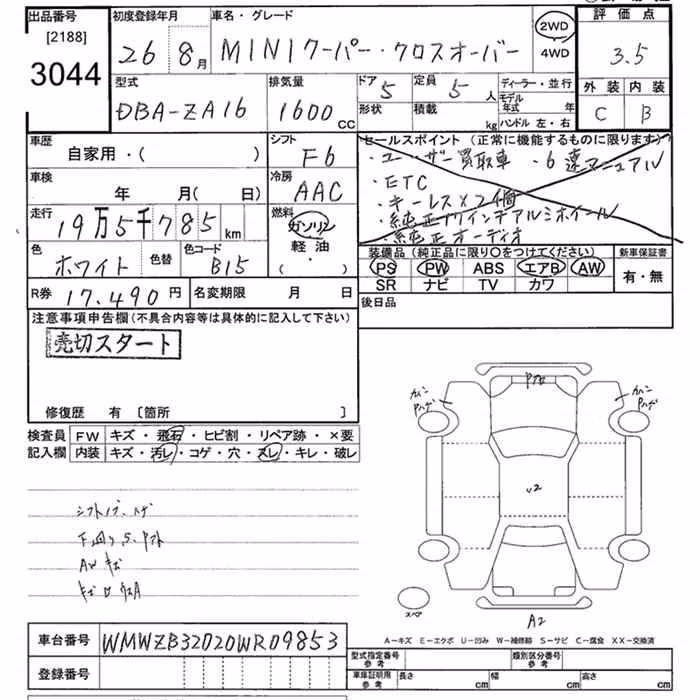 出品番号 [2188] 3044
初度登録年月 26 8月
車名・グレード MINIクーパー・クロスオーバー
2WD
4WD
評価点 3.5
外装 内装
C B
型式 DBA-ZA16
排気量 1600 CC
ドア 5 定員 5 人
形状 積載 kg
ディーラー・並行
モデル年式 年
ハンドル 左・右
車歴 自家用・( )
シフト F6
車検 年 月( 日)
冷房 AAC
走行 19万5千785 km
燃料 ガソリン
軽油・
( )
色 ホワイト 色替 色コード B15
R券 17.490円 名変期限 月 日
セールスポイント (正常に機能するものに限ります)
・ユーザー買取車 ・6速マニュアル
・ETC
・キーレス×2個
・純正17インチアルミホイール
・純正オーディオ
装備品 (純正品に限り○をつけてください) 新車保証書
PS PW ABS エアB AW 有・無
SR ナビ TV カワ
後日品
注意事項申告欄(不具合内容等は具体的に記入して下さい)
売切スタート
修復歴 有 [箇所 ]
検査員 FW キズ・飛石・ヒビ割・リペア跡・×要
記入欄 内装 キズ・汚レ・コゲ・穴・スレ・キレ・破レ
シフトノブ ハゲ
AWキズ
v2
スペア
A2
A-キズ E-エクボ U-凹み W-補修跡 S-サビ C-腐食 XX-交換済
車台番号 WMWZB32020WR09853
登録番号
型式指定番号 参考 類別区分番号 参考
車庫証明用 参考 長さ cm 幅 cm 高さ cm